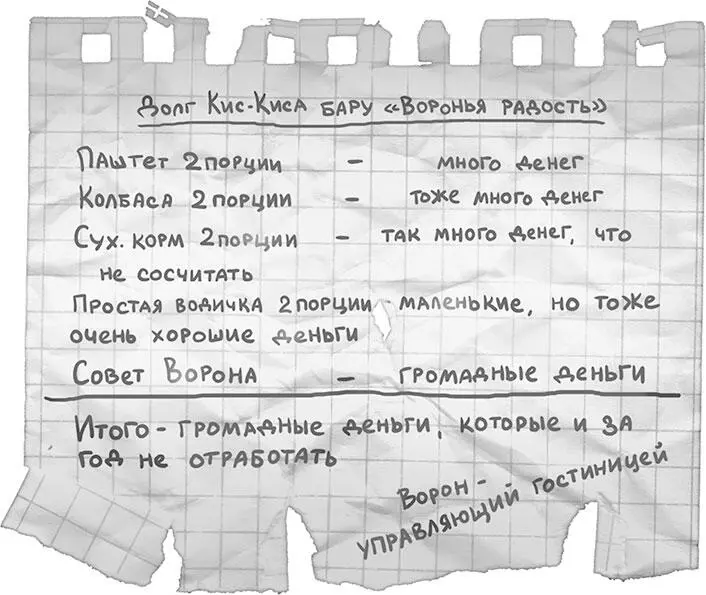 Долг Кис-Киса бару «Воронья радость»
Паштет 2 порции – много денег
Колбаса 2 порции – тоже много денег
Сух. корм 2 порции – так много денег, что
не сосчитать
Простая водичка 2 порции - маленькие, но тоже
очень хорошие деньги
Совет Ворона – громадные деньги
Итого - громадные деньги, которые и за
год не отработать
Ворон -
управляющий гостиницей